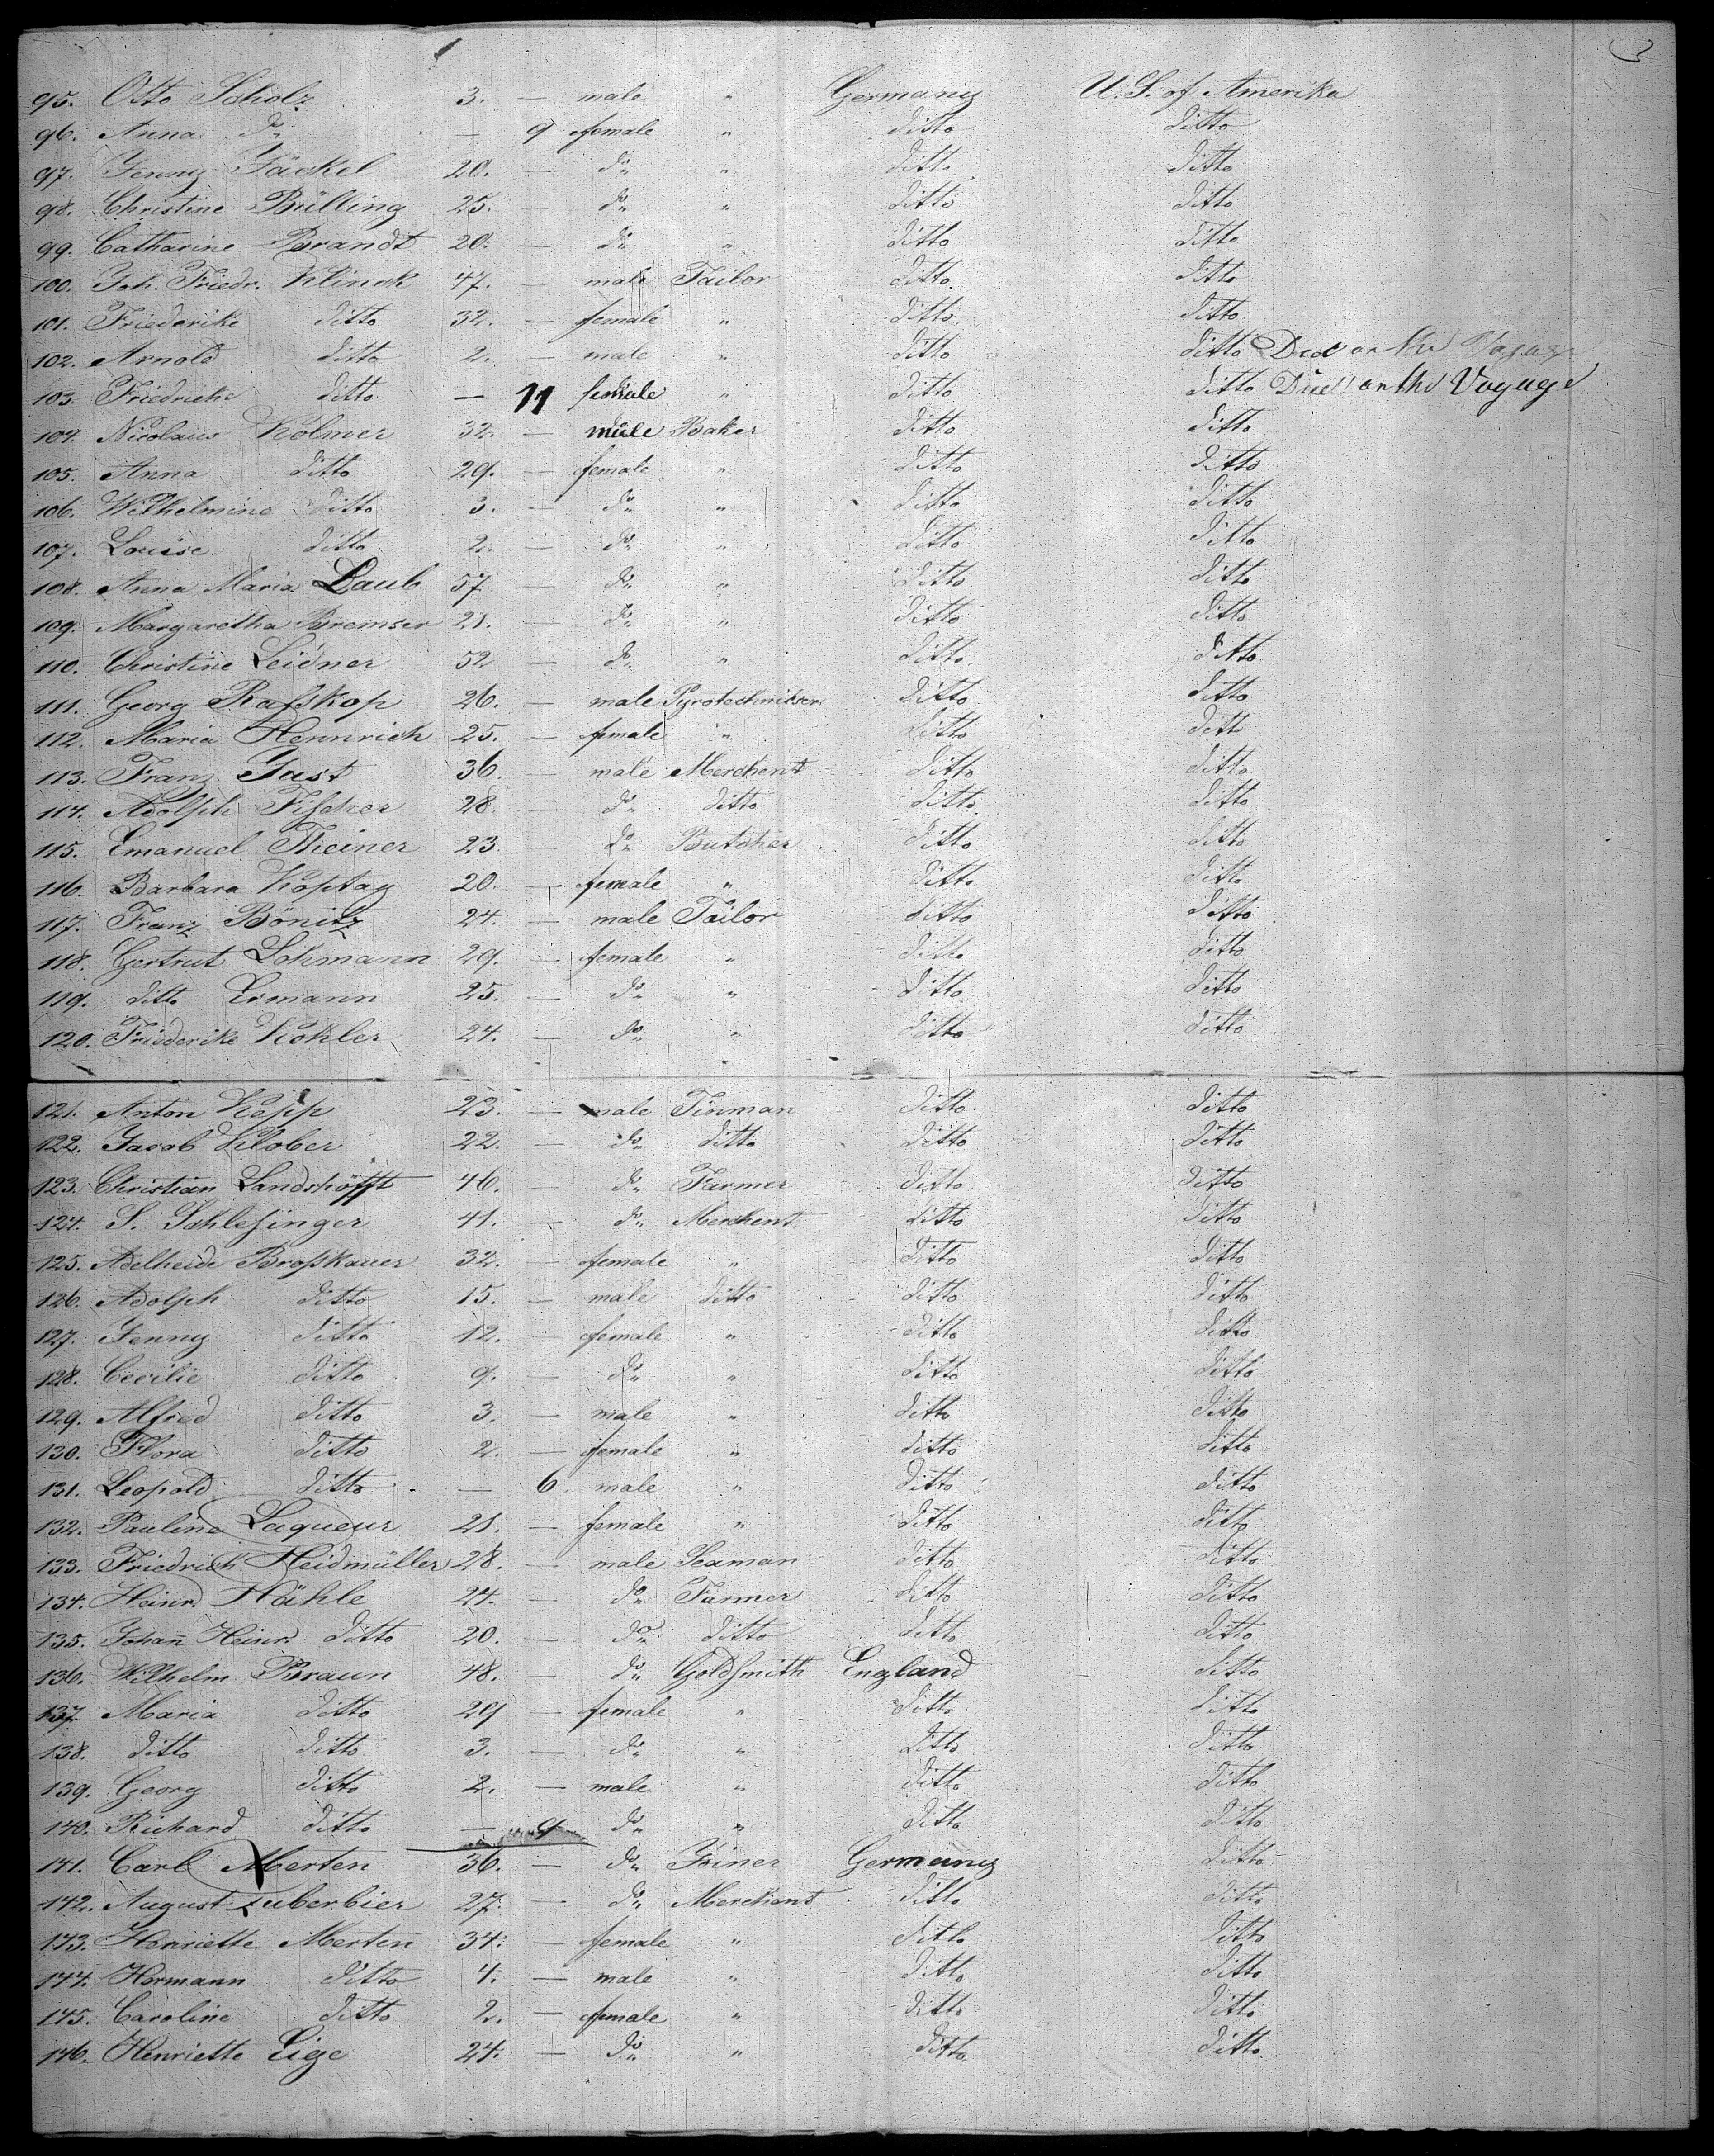 95. Otto Scholz 3. — male " Germany U.S. of Amerika
96. Anna do — 9 female " ditto ditto
97. Jenny Jäckel 20. — do " ditto ditto
98. Christine Bülling 25. — do " ditto ditto
99. Catharine Brandt 20. — do " ditto ditto
100. Joh. Friedr. Klinck 47. — male Tailor ditto ditto
101. Friederike ditto 32. — female " ditto ditto
102. Arnold ditto 2. — male " ditto ditto Died on the Voyage
103. Friedericke ditto — 11 female " ditto ditto Died on the Voyage
104. Nicolaus Kolmer 32. — male Baker ditto ditto
105. Anna ditto 29. — female " ditto ditto
106. Wilhelmine ditto 3. — do " ditto ditto
107. Louise ditto 2. — do " ditto ditto
108. Anna Maria Daub 57 — do " ditto ditto
109. Margaretha Bremser 21. — do " ditto ditto
110. Christine Leidner 52 — do " ditto ditto
111. Georg Raßkop 26. — male ditto ditto
112. Maria Hennrich 25. — female " ditto ditto
113. Franz Just 36. — male Merchent ditto ditto
114. Adolph Fischer 28. — do ditto ditto ditto
115. Emanuel Theiner 23. — do Butcher ditto ditto
116. Barbara Koptay 20. — female " ditto ditto
117. Franz Bönitz 24. — male Tailor ditto ditto
118. Gertrut Lohmann 29. — female " ditto ditto
119. ditto Ermann 25. — do " ditto ditto
120. Friederike Köhler 24. — do " ditto ditto
121. Anton Kepp 23. — male Tinman ditto ditto
122. Jacob Klober 22. — do ditto ditto ditto
123. Christian Landshöfft 46. — do Farmer ditto ditto
124. S. Schleßinger 41. — do Merchent ditto ditto
125. Adelheide Broßkauer 32. — female " ditto ditto
126. Adolph ditto 15. — male ditto ditto ditto
127. Jenny ditto 12. — female " ditto ditto
128. Cecilie ditto 9. — do " ditto ditto
129. Alfred ditto 3. — male " ditto ditto
130. Flora ditto 2. — female " ditto ditto
131. Leopold ditto — 6. male " ditto ditto
132. Pauline Laqueur 21. — female " ditto ditto
133. Friedrich Heidmüller 28. — male Seaman ditto ditto
134. Heinr. Hähle 24. — do Farmer ditto ditto
135. Johan̄ Heinr. ditto 20. — do ditto ditto ditto
136. Wilhelm Braun 48. — do Goldsmith England ditto
137. Maria ditto 29 — female " ditto ditto
138. ditto ditto 3. — do " ditto ditto
139. Georg ditto 2. — male " ditto ditto
140. Richard ditto — 9 do " ditto ditto
141. Carl Merten 36. — do Joiner Germany ditto
142. August Zuberbier 27. — do Merchent ditto ditto
143. Henriette Merten 34. — female " ditto ditto
144. Hermann ditto 4. — male " ditto ditto
145. Caroline ditto 2. — female " ditto ditto
146. Henriette Eige 24. — do " ditto ditto